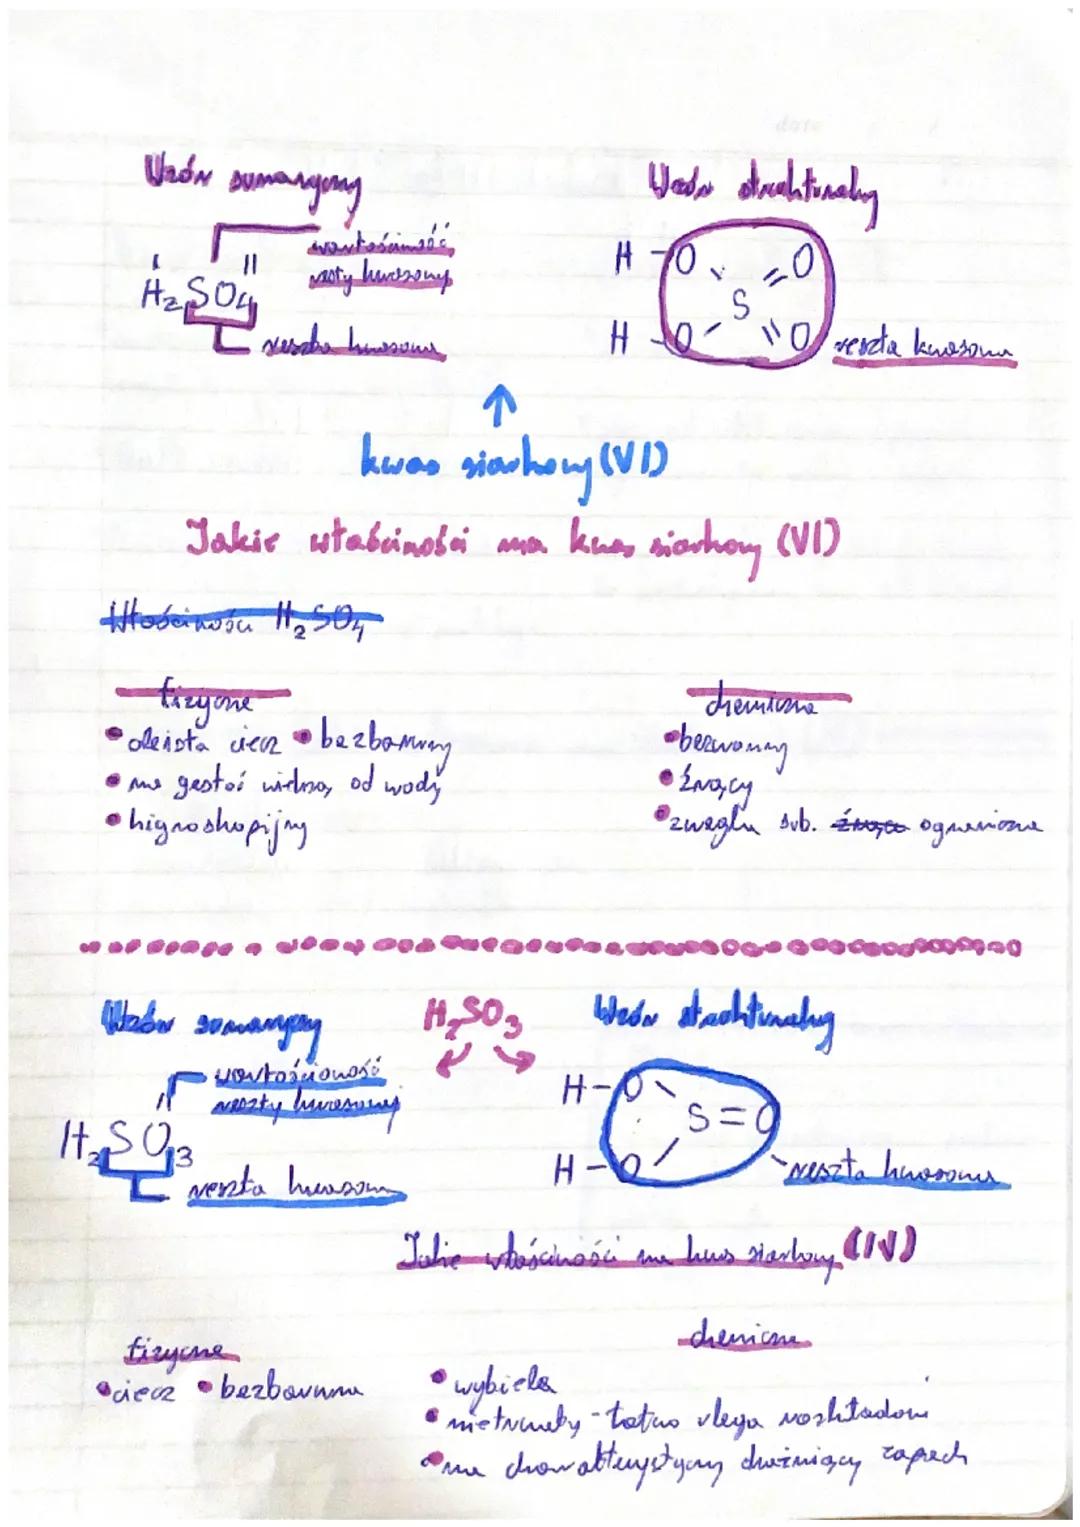 Wzór sumaryczny
Wzór strukturalny
wartościowość
reszty kwasowej
I II
H₂SO₄
reszta kwasowa
H - O O
S
H - O O
reszta kwasowa
↑
kwas siarkowy (VI)
Jakie właściwości ma kwas siarkowy (VI)
Właściwości H₂SO₄
fizyczne
chemiczne
• oleista ciecz • bezbarwny
• bezwonny
• ma gęstość większą od wody
• żrący
• higroskopijny
• zwęgla sub. żrąca ograniczne
Wzór sumaryczny
H₂SO₃
Wzór strukturalny
wartościowość
reszty kwasowej
II
H₂SO₃
reszta kwasowa
H - O
S = O
H - O
reszta kwasowa
Jakie właściwości ma kwas siarkowy (IV)
fizyczne
chemiczne
• ciecz • bezbarwna
• wybiela
• nietrwały - łatwo ulega rozkładowi
• ma charakterystyczny drażniący zapach